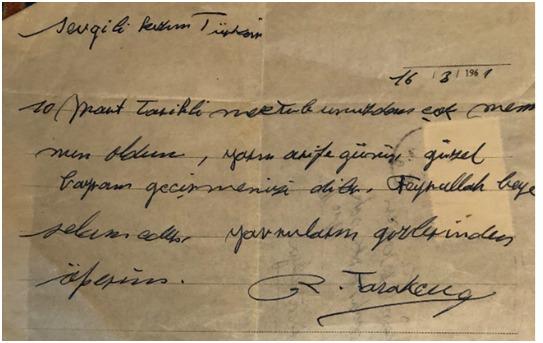 Sevgili kızım Türkân
16 / 3 / 1961
10 Mart tarihli mektubunuzdan çok mem
nun oldum, yarın arife günü güzel
bayram geçirmenizi diler, Feyzullah beye
selam eder, yavruların gözlerinden
öperim.